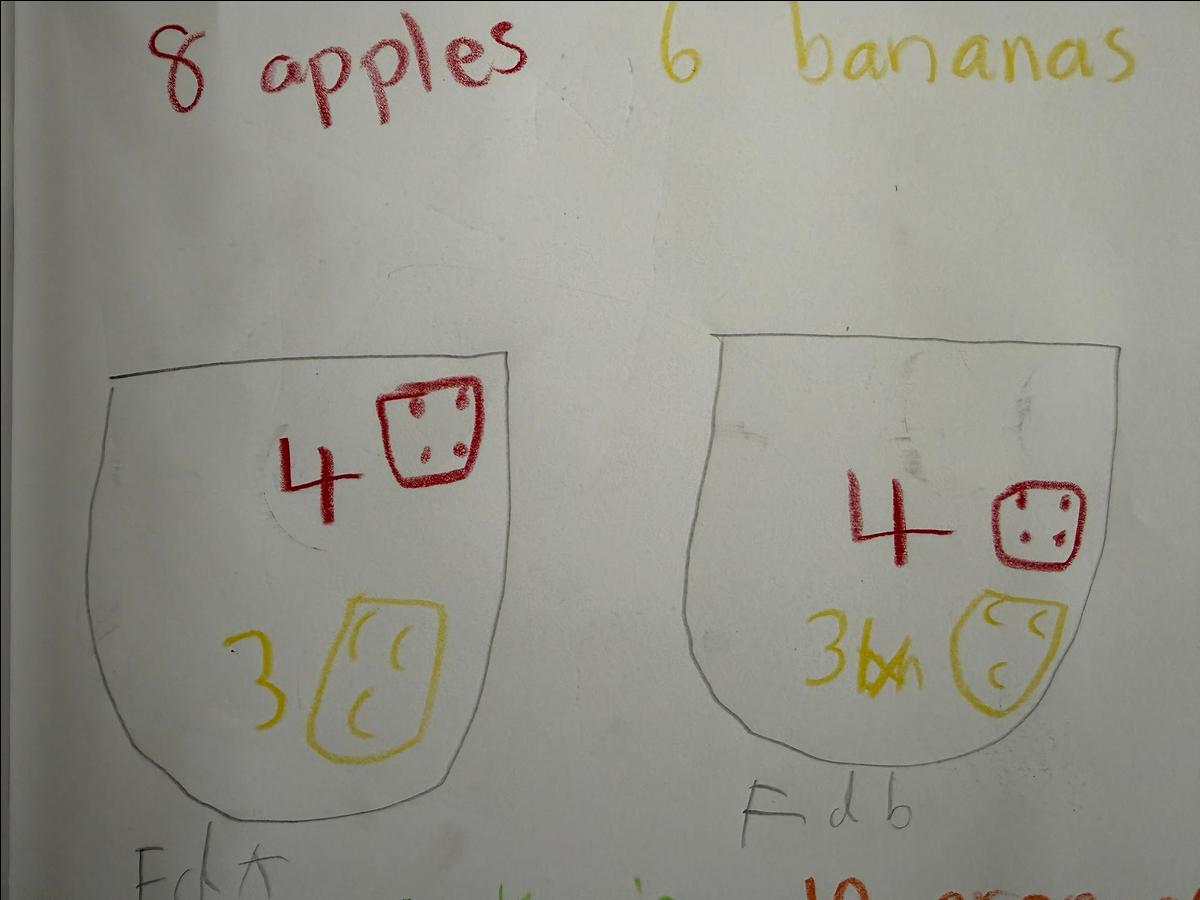 8 apples 6 bananas
4 4
3 3
Fdb
10